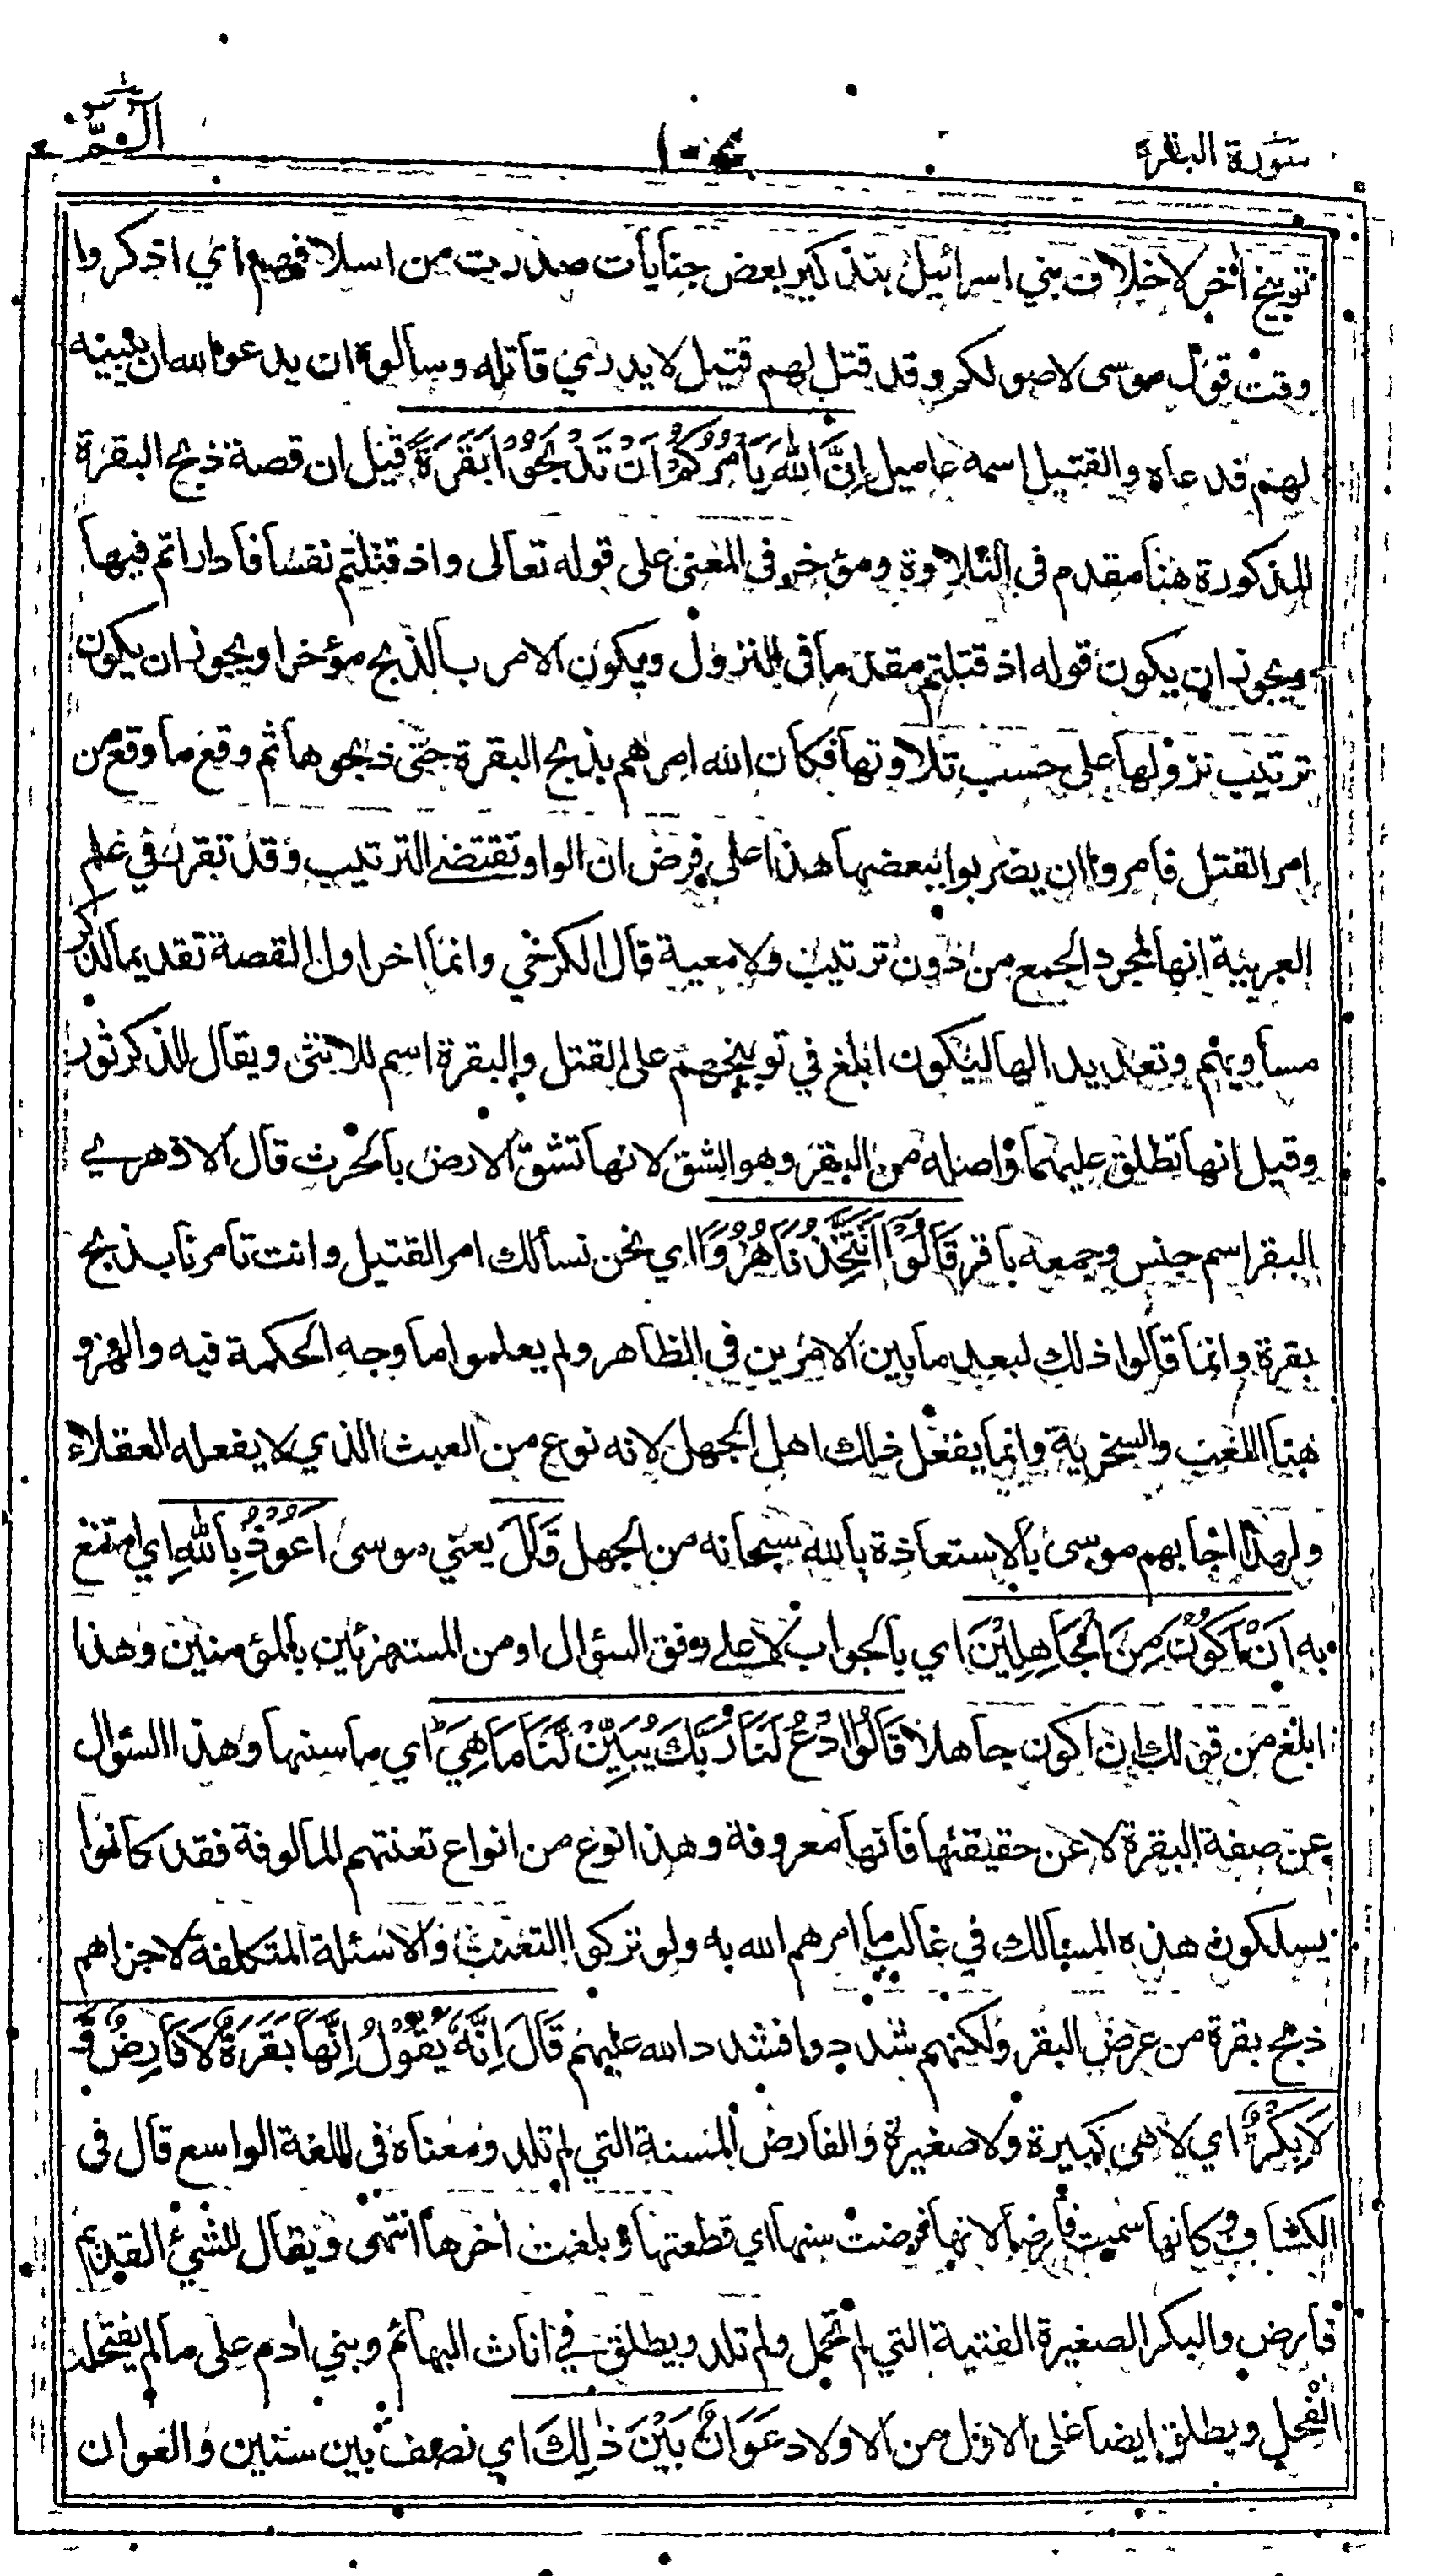 سورة البقرة
١٠٤
الٓمّ
توبيخ أخر لاخلاف بني اسرائيل بتذكير بعض جنايات صدرت من اسلافهم اي اذكروا
وقت قول موسى لاصولكم وقد قتل لهم قتيل لا يدرى قاتله وسألوه ان يدعو الله ان يبينه
لهم فدعاه والقتيل اسمه عاميل اِنَّ اللهَ يَأْمُرُكُمْ اَنْ تَذْبَحُوْا بَقَرَةً قيل ان قصة ذبح البقرة
المذكورة هنا مقدم في التلاوة ومؤخر في المعنى على قوله تعالى واذ قتلتم نفسا فادارأتم فيها
ويجوز ان يكون قوله اذ قتلتم مقدما في النزول ويكون الامر بالذبح مؤخرا ويجوز ان يكون
ترتيب نزولها على حسب تلاوتها فكان الله امرهم بذبح البقرة حتى ذبحوها ثم وقع ما وقع من
امر القتل فامروا ان يضربوا ببعضها هذا على فرض ان الواو تقتضي الترتيب وقد تقرر في علم
العربية انها لمجرد الجمع من دون ترتيب ولا معية قال الكرخي وانما اخر اول القصة تقديما لذكر
مساويهم وتعديدا لها ليكون ابلغ في توبيخهم على القتل والبقرة اسم للانثى ويقال للذكر ثور
وقيل انها تطلق عليهما واصله من البقر وهو الشق لانها تشق الارض بالحرث قال الازهري
البقر اسم جنس وجمعه باقر قَالُوْا اَتَتَّخِذُنَا هُزُوًا اي نحن نسألك امر القتيل وانت تامرنا بذبح
بقرة وانما قالوا ذلك لبعد ما بين الامرين في الظاهر ولم يعلموا ما وجه الحكمة فيه والهزو
هنا اللعب والسخرية وانما يفعل ذلك اهل الجهل لانه نوع من العبث الذي لا يفعله العقلاء
ولهذا اجابهم موسى بالاستعاذة بالله سبحانه من الجهل قَالَ يعني موسى اَعُوْذُ بِاللهِ اي امتنع
به اَنْ اَكُوْنَ مِنَ الْجَاهِلِيْنَ اي بالجواب لا على وفق السؤال او من المستهزئين بالمؤمنين وهذا
ابلغ من قولك ان اكون جاهلا قَالُوا ادْعُ لَنَا رَبَّكَ يُبَيِّنْ لَّنَا مَا هِيَ اي ما سنها وهذا السؤال
عن صفة البقرة لا عن حقيقتها فانها معروفة وهذا نوع من انواع تعنتهم المألوفة فقد كانوا
يسلكون هذه المسالك في غالب ما امرهم الله به ولو تركوا التعنت والاسئلة المتكلفة لاجزاهم
ذبح بقرة من عرض البقر ولكنهم شددوا فشدد الله عليهم قَالَ اِنَّهٗ يَقُوْلُ اِنَّهَا بَقَرَةٌ لَا فَارِضٌ وَّ
لَا بِكْرٌ اي لا هي كبيرة ولا صغيرة والفارض المسنة التي لم تلد ومعناه في اللغة الواسع قال في
الكشاف وكانها سميت فارضا لانها فرضت سنها اي قطعتها وبلغت أخرها انتهى ويقال للشئ القديم
فارض والبكر الصغيرة الفتية التي لم تحمل ولم تلد ويطلق في اناث البهائم وبني ادم على ما لم يفتحله
الفحل ويطلق ايضا على الاول من الاولاد عَوَانٌ بَيْنَ ذٰلِكَ اي نصف بين سنتين والعوان